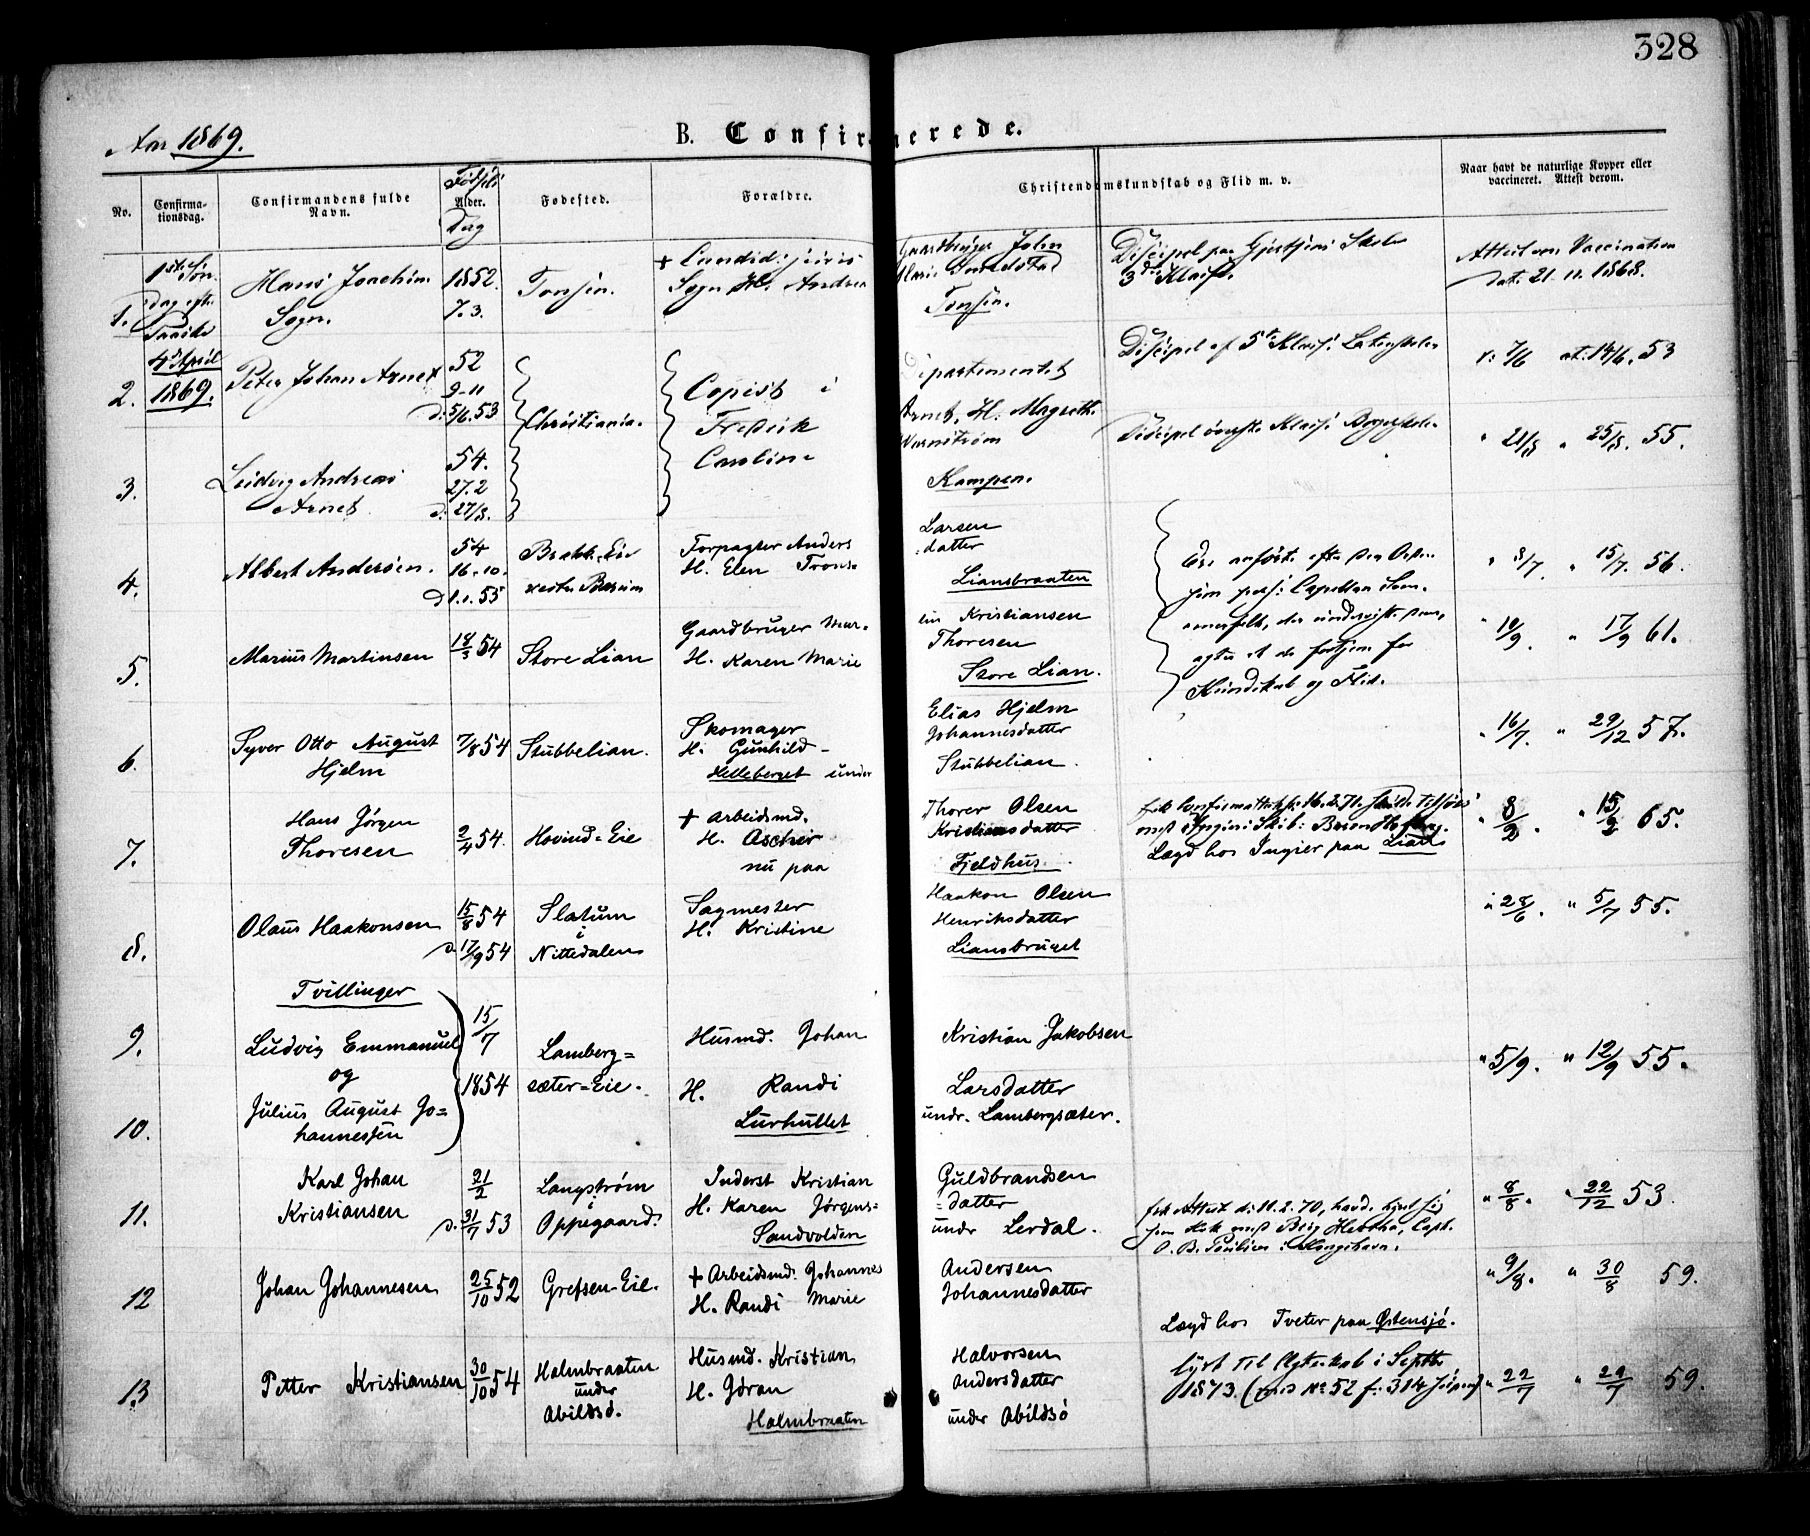 328
Aar 1869.
B. Confirmerede.
No.
Confirma-
tionsdag.
Confirmandens fulde
Navn.
Fødsels
Alder.
Dag
Fødested.
Forældre.
Christendomskundskab og Flid m. v.
Naar havt de naturlige Kopper eller
vaccineret. Attest derom.
1.
1ste Søn-
dag eft.
Paaske
4de April
1869.
Hans Joachim
Sogn.
1852.
7.3.
Tonsen.
+ Candid: juris
Sogn H. Andrea
Gaardbruger John
Marie
Tonsen.
Discipel paa Gjertsens Skoles
3die Klasse.
Attest om Vaccination
dat: 21. 11. 1868.
2.
Peter Johan Arnet
52
9-11
d: 5/6. 53
Christiania.
Copist i
Fredrik
Caroline
Departementet
Arnet, H. Magrethe
Wernström
Kampen.
Discipel af 5te Klasse: Latinskolen
v: 7/6 at: 14/6. 53
3.
Ludvig Andreas
Arnet.
54.
27.2
d: 27/8.
Discipel øverste Klasse: Borgerskolen
" 21/8 " 25/8. 55.
4.
Albert Andersen.
54
16-10.
d 1.1.55
Bakk-Eie
vestre Bærum
Forpagter Anders
H. Elen Trons-
Larsen
datter
Liansbraaten
" 8/7. " 15/7. 56.
5.
Marius Martinsen
18/3 54
Store Lian
Gaardbruger Mar-
H. Karen Marie
tin Kristiansen
Thoresen
Store Lian.
Kundskab og Flid.
" 10/9. " 17/9 61.
6.
Syver Otto August
Hjelm
7/8 54
Stubbelian.
Skomager
H. Gunhild-
Helleberget under
Elias Hjelm
Johannesdatter
Stubbelian.
" 16/7. " 29/12 57.
7.
Hans Jörgen
Thoresen
2/4 54.
Hovind-Eie
+ Arbeidsmd.
H. Aschier
nu paa
Thorer Olsen
Kristiansdatter
Fjeldhus.
Lægd hos Ingier paa Lian
" 8/2. " 15/2 65.
8.
Olaus Haakonsen
15/8 54
d. 17/9 54
Slatum
i
Nittedalen
Sagmester
H. Kristine
Haakon Olsen
Henriksdatter
Liansbruget
" 28/6. " 5/7 55.
Tvillinger
9.
Ludvig Emmanuel
og
15/7
1854
Lamberg=
sæter=Eie.
Husmd. Johan
H. Randi
Lurhullet
Kristian Jakobsen
Larsdatter
undr. Lambergsæter.
" 5/9. " 12/9 55.
10.
Julius August Jo=
hannessen
11.
Karl Johan
Kristiansen
21/2
d. 31/7 53
Langström
i
Oppegaard.
Inderst Kristian
H. Karen Jörgens=
Sandvolden
Guldbrandsen
=datter
undr Lerdal.
fik Attest d: 11.2.70, havde hyret sig
" 8/8. " 22/12 53.
12
Johan Johannesen
25/10 52
Grefsen-Eie.
+ Arbeidsmd: Johannes
H. Randi Marie
Andersen
Johannesdatter
Lægd hos Tveter paa Østensjø.
" 9/8. " 30/8 59.
13.
Petter Kristiansen
30/10 54
Halmbraaten
under
Abildsö.
Husmd. Kristian
H. Göran
Halmbraaten
Halvorsen
Andersdatter
under Abildsö
lyst til Ægteskab i Septbr
1873.
" 22/7 " 29/7 59.